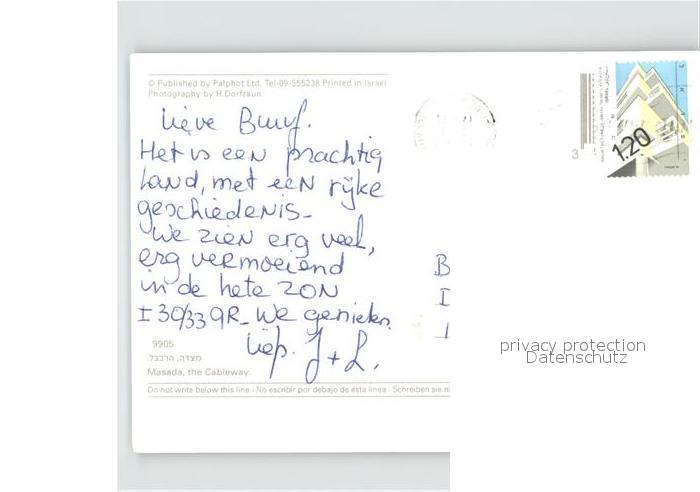 © Published by Palphot Ltd. Tel-09-555238 Printed in Israel
Photography by H.Dorfzaun
Lieve
Het is een prachtig
land, met een rijke
geschiedenis-
We zien erg veel,
erg vermoeiend
in de hete ZON
± 30/33 GR- We genieten.
liefs. J + L.
9905
מצדה, הרכבל.
Masada, the Cableway.
Do not write below this line - No escribir por debajo de esta linea - Schreiben sie n
3
1.20
B
I
privacy protection
Datenschutz